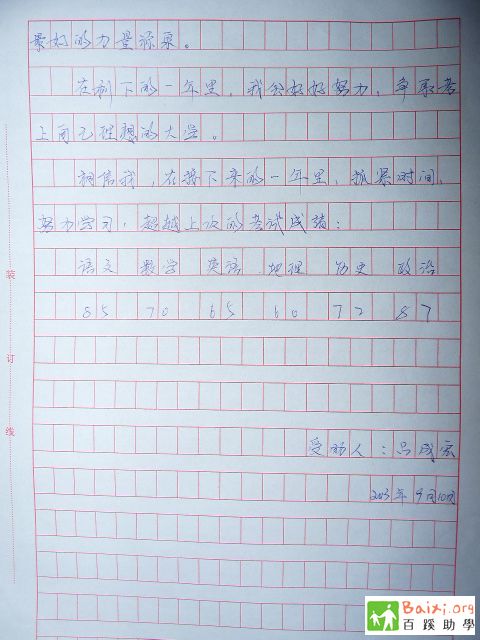 最好的力量源泉。
在剩下的一年里，我会好好努力，争取考
上自己理想的大学。
相信我，在接下来的一年里，抓紧时间，
努力学习，超越上次的考试成绩：
语文 数学 英语 地理 历史 政治
85 70 65 60 72 87
装
订
线
受助人：吕成
2013年9月10日
Baixi.org
百蹊助學